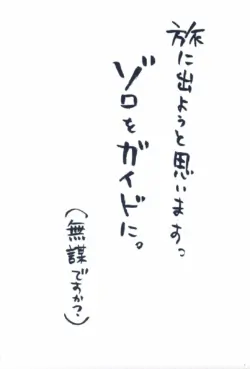 旅に出ようと思います。
ゾロをガイドに。
（無謀ですか？）